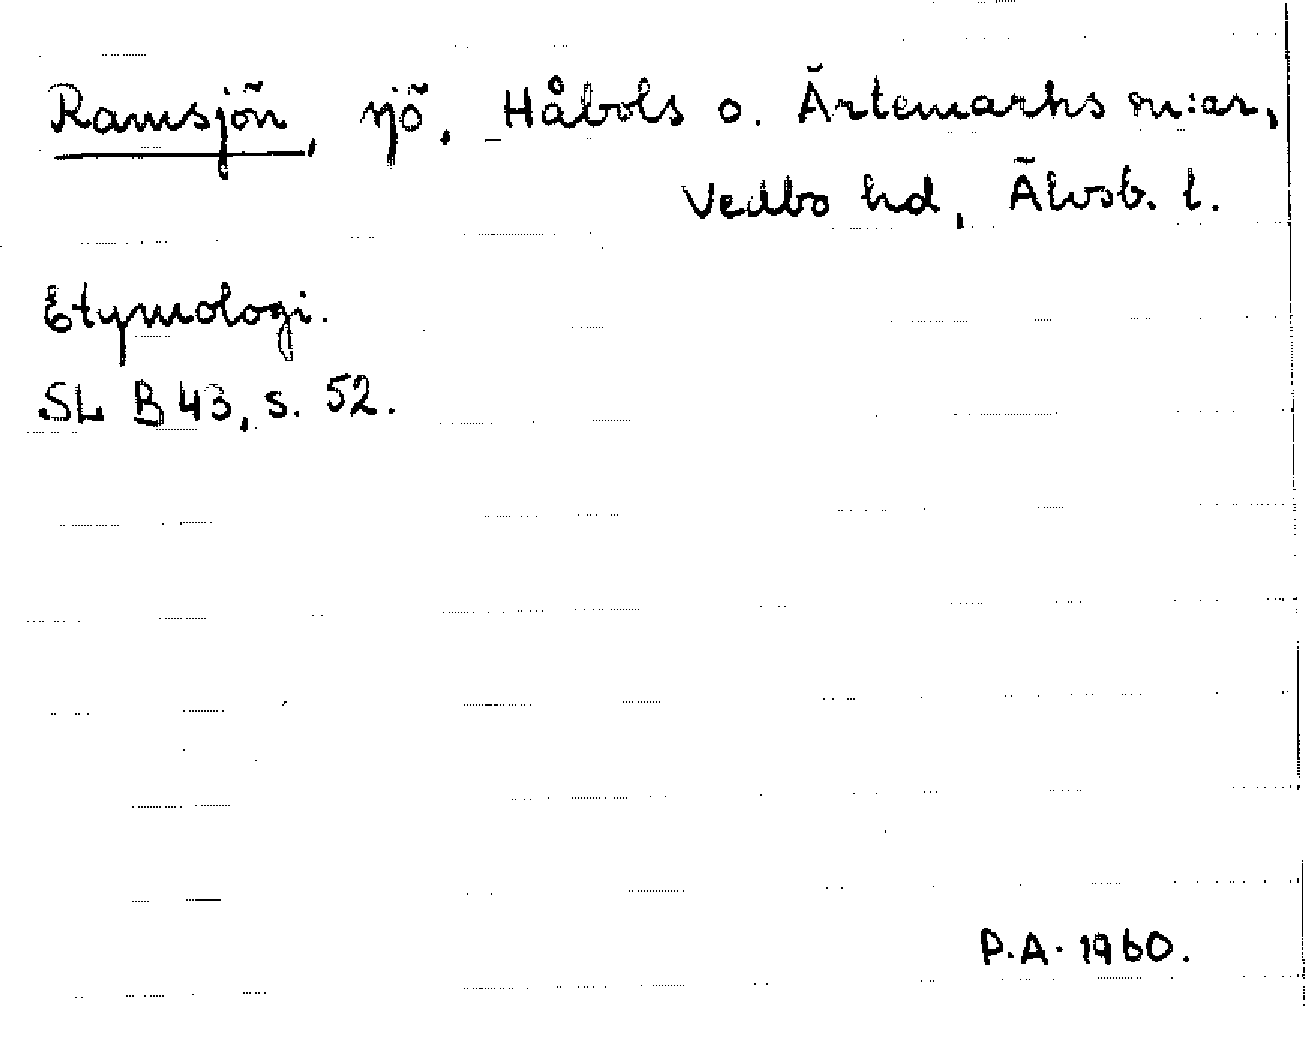 Ramsjön, sjö, Håbols o. Ärtemarks sn:ar,
Vedbo hd, Älvsb. l.
Etymologi.
SL B 43, s. 52.
P.A. 1960.